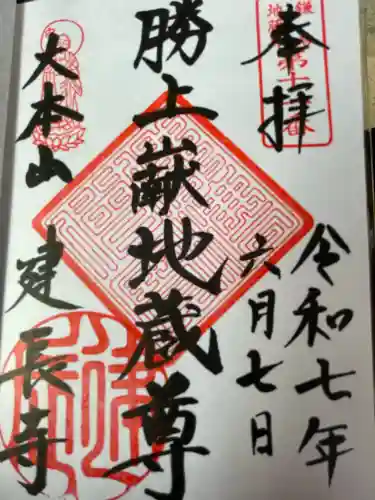 奉拝
令和七年
六月七日
勝上嶽地蔵尊
大本山 建長寺